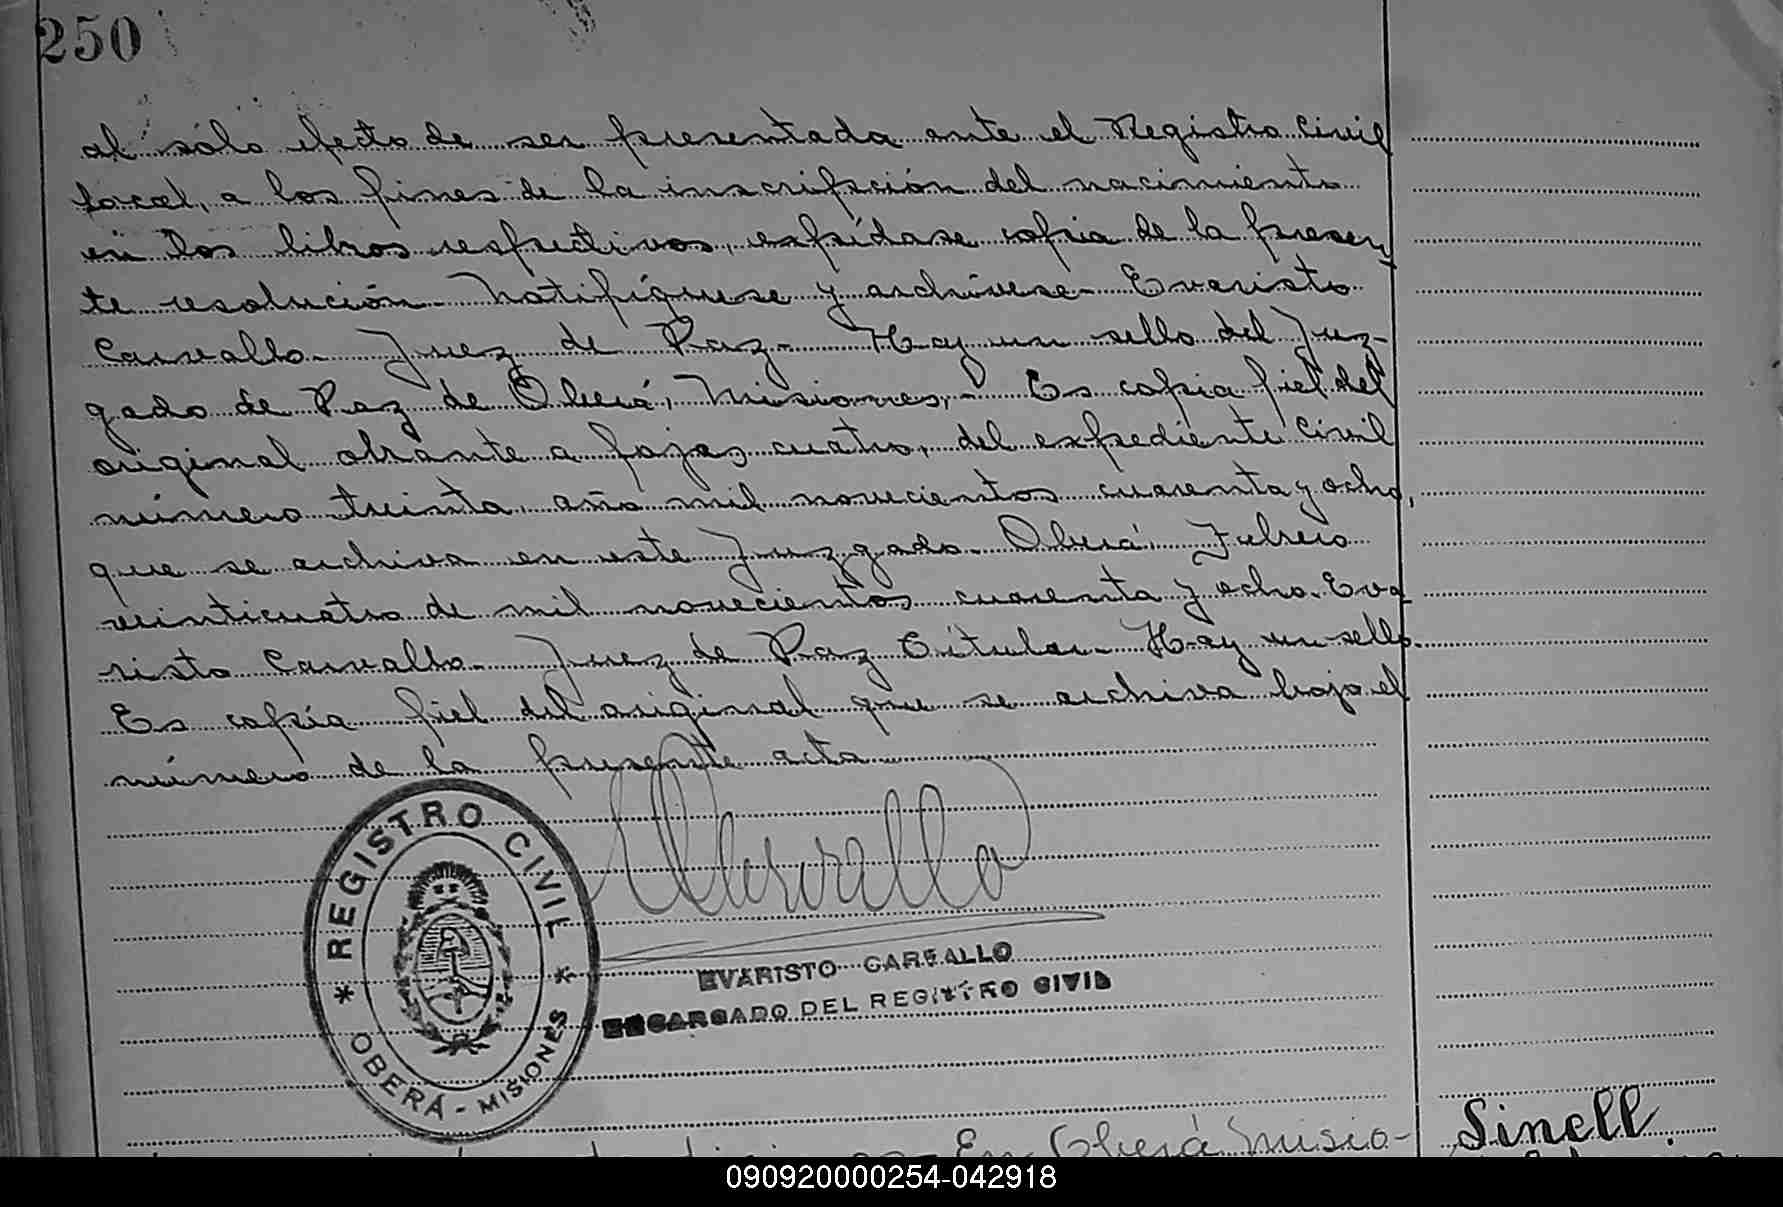 250
al sólo efecto de ser presentada ante el Registro Civil
local, a los fines de la inscripción del nacimiento
en los libros respectivos, expídase copia de la presen
te resolución. Notifíquese y archívese- Evaristo
Carvallo- Juez de Paz- Hay un sello del Juz-
gado de Paz de Oberá, Misiones,- Es copia fiel del
original obrante a fojas cuatro, del expediente Civil
número treinta, año mil novecientos cuarenta y ocho,
que se archiva en este Juzgado. Oberá, Febrero
veinticuatro de mil novecientos cuarenta y ocho. Eva
risto Carvallo- Juez de Paz Titular- Hay un sello.
Es copia fiel del original que se archiva bajo el
número de la presente acta
REGISTRO CIVIL
OBERÁ - MISIONES
Carvallo
EVARISTO CARVALLO
ENCARGADO DEL REGISTRO CIVIL
En Oberá Misio-
Sinell.
090920000254-042918